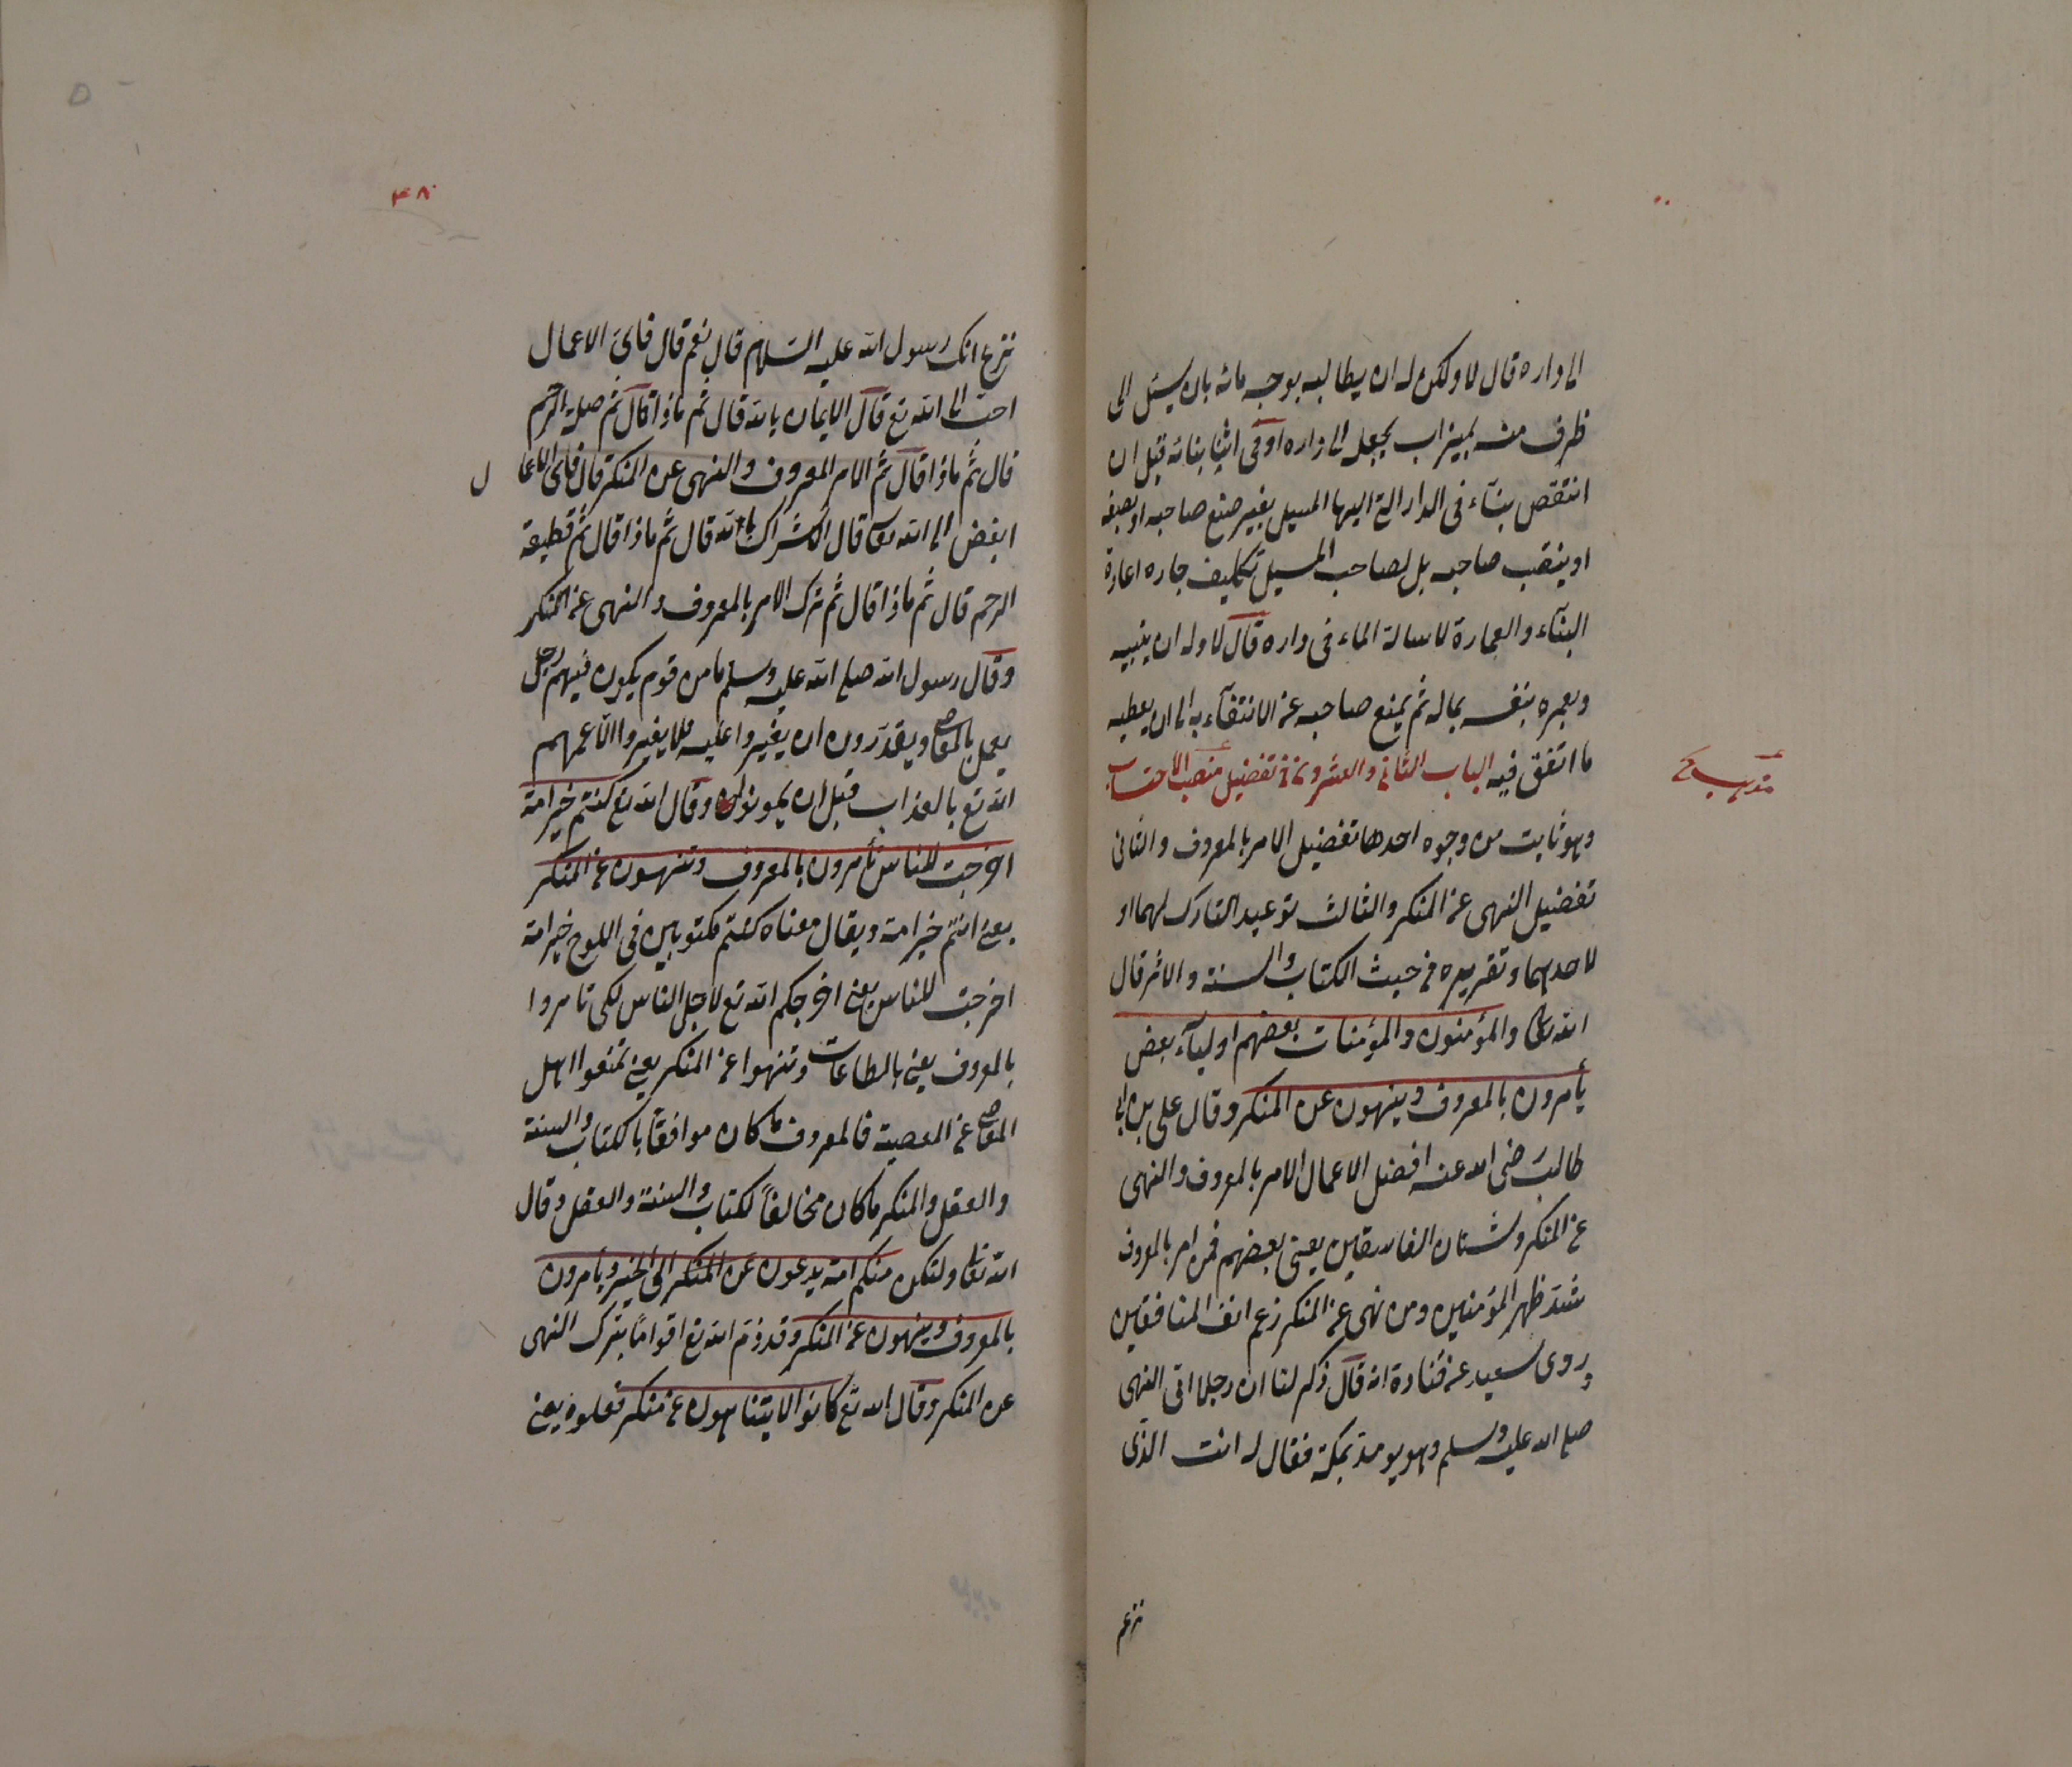 الى داره قال لا ولكن له ان يطالبه بوجه مائه بان يسئل الى
ظرف منه بميزاب يجعله الى داره او فى اثنا بنائه قبل ان
انتقص بناء فى الدار التى اليها المسيل بغير صنع صاحبه او بصنعه
او ينقب صاحبه بل لصاحب المسيل تكليف جاره اعادة
البنآء والعمارة لاسالة الماء فى داره قال لا وله ان يبنيه
ويعمره بنفسه بماله ثم يمنع صاحبه عن الانتفآء به الى ان يعطيه
ما انفق فيه الباب الثانى والعشرون فى تفضيل منصب الاحتساب
وهو ثابت من وجوه احدها تفضيل الامر بالمعروف والثانى
تفضيل النهى عن المنكر والثالث توعيد التارك لهما او
لاحدهما وتقريره من حيث الكتاب والسنة والاثر قال
الله تعالى والمؤمنون والمؤمنات بعضهم اوليآء بعض
يأمرون بالمعروف وينهون عن المنكر وقال على بن ابى
طالب رضى الله عنه افضل الاعمال الامر بالمعروف والنهى
عن المنكر وشنان الفاسقين يعنى بعضهم فمن امر بالمعروف
شد ظهر المؤمنين ومن نهى عن المنكر زعم انف المنافقين
وروى سعيد عن قتادة انه قال ذكر لنا ان رجلا اتى النبى
صلى الله عليه وسلم وهو يومئذ بمكة فقال له انت الذى
تزعم
٤٨
تزعم انك رسول الله عليه السلام قال نعم قال فاى الاعمال
احب الى الله تع قال الايمان بالله قال ثم ماذا قال ثم صلة الرحم
قال ثم ماذا قال ثم الامر المعروف والنهى عن المنكر قال فاى الاعما ل
ابغض الى الله تعالى قال الاشراك بالله قال ثم ماذا قال ثم قطيعة
الرحم قال ثم ماذا قال ثم ترك الامر بالمعروف والنهى عن المنكر
وقال رسول الله صلى الله عليه وسلم ما من قوم يكون فيهم رجل
يعمل بالمعاصى ويقدرون ان يغيروا عليه فلا يغيروا الا عمهم
الله تع بالعذاب قبل ان يموتوا وقال الله تع كنتم خير امة
اخرجت للناس تأمرون بالمعروف وتنهون عن المنكر
يعنى انتم خير امة ويقال معناه كنتم مكتوبين فى اللوح خير امة
اخرجت للناس يعنى اخرجكم الله تع لاجل الناس لكى تامروا
بالمعروف يعنى بالطاعات وتنهوا عن المنكر يعنى تمنعوا اهل
المعاصى عن المعصية فالمعروف ما كان موافقًا بالكتاب والسنة
والعقل والمنكر ما كان مخالفًا لكتاب والسنة والعقل وقال
الله تعالى ولتكن منكم امة يدعون عن المنكر الى الخير ويأمرون
بالمعروف وينهون عن المنكر وقد ذم الله تع اقوامًا بترك النهى
عن المنكر وقال الله تع كانوا لا يتناهون عن منكر فعلوه يعنى